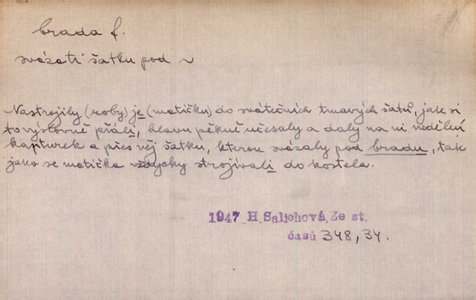 brada f.
svázati šátku pod ~
Nastrojily (roby) je (matičku) do svátečních tmavých šatů, jak si
to výslovně přáli, hlavu pěkně učesaly a daly na ni nedělní
kapturek a přes něj šátku, kterou svázaly pod bradu, tak
jako se matička vždycky strojívali do kostela.
1947 H. Salichová, Ze st.
časů 348, 34.